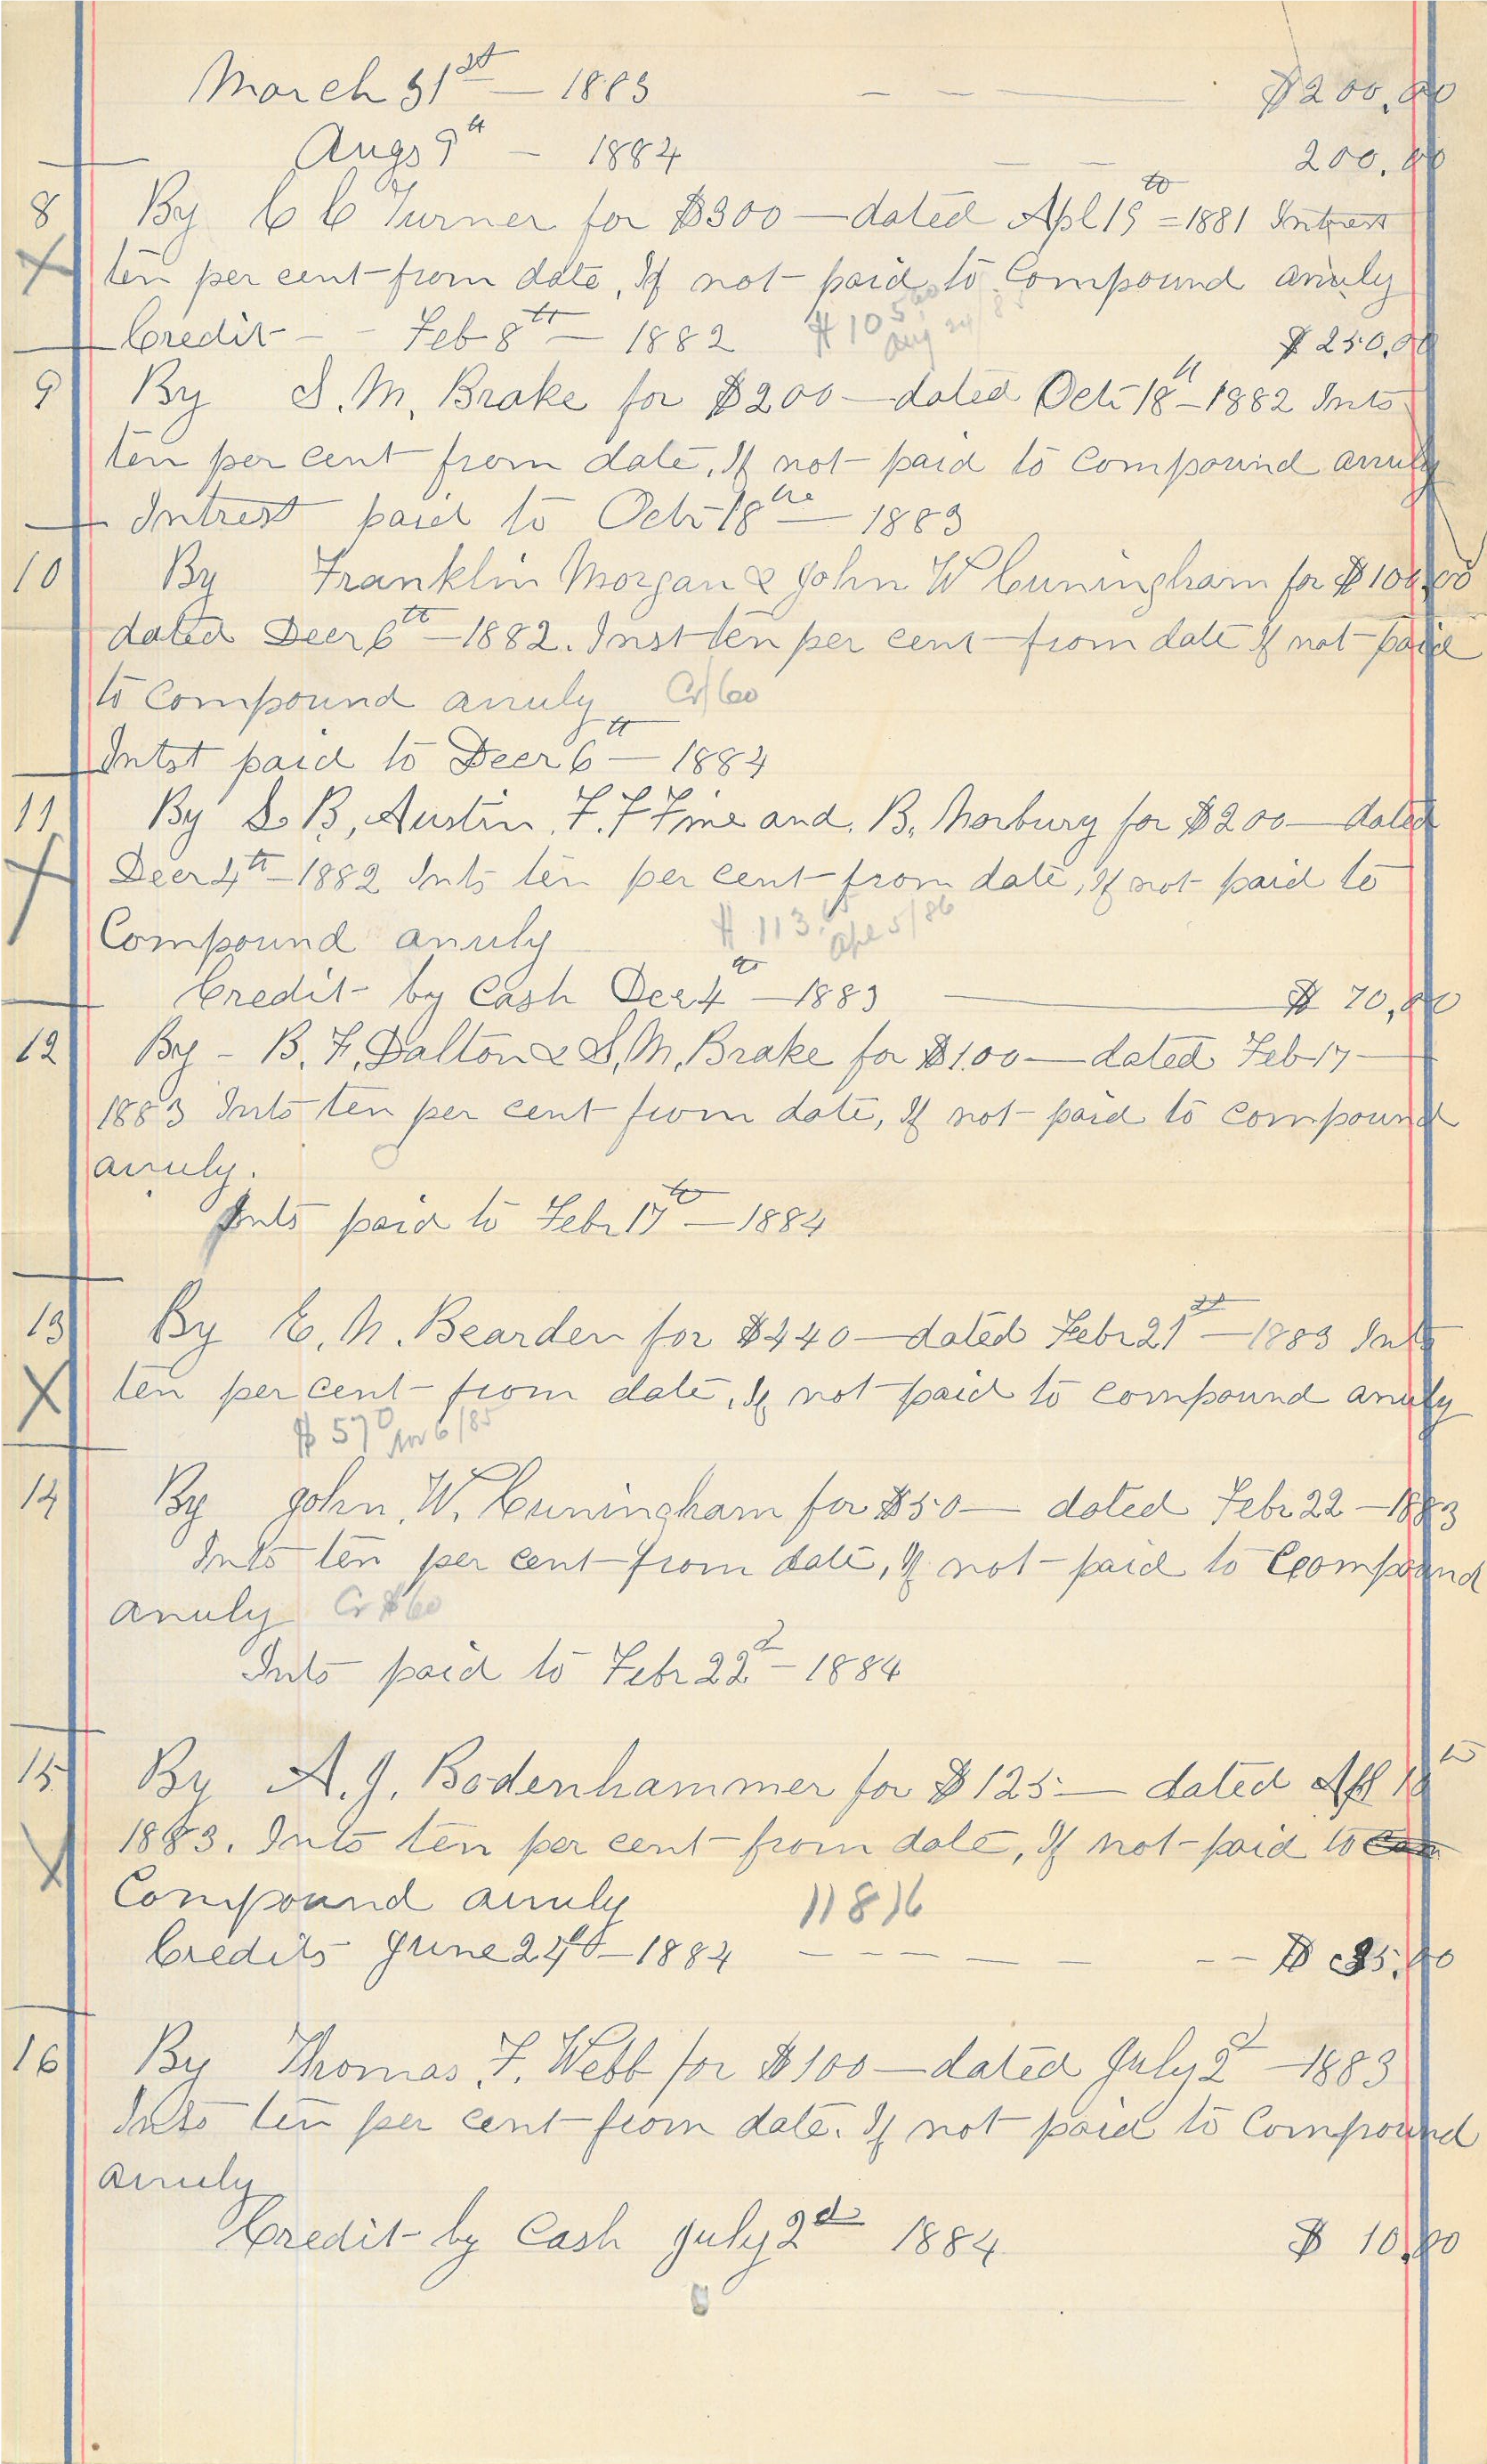 March 31st — 1883 — — — $200.00
Augs 9th — 1884 — — 200.00
8 By C C Turner for $300 — dated Apl 15th = 1881 Intrest
X ten per cent from date, If not paid to Compound anuly
Credit - - Feb 8th — 1882 $ 250.00
$105.60 Aug 24/85
9 By S. M. Brake for $200 — dated Octr 18th - 1882 Ints
ten per cent from date, If not paid to compound anuly
Intrest paid to Octr 18th — 1883
10 By Franklin Morgan & John W Cuningham for $100.00
dated Decr 6th - 1882. Inst ten per cent from date If not paid
to compound anuly Cr 60
Intst paid to Decr 6th — 1884
11 By S. B, Austin, F. F Fine and, B, Norbury for $200 — dated
X Decr 4th - 1882 Ints ten per cent from date, If not paid to
Compound anuly $113.65 Apl 5/86
Credit by Cash Decr 4th — 1883 — $ 70.00
12 By - B. F. Dalton & S, M, Brake for $100 — dated Feb 17 —
1883 Ints ten per cent from date, If not paid to compound
anuly.
Ints paid to Febr 17th — 1884
13 By E. N. Bearden for $440 — dated Febr 21st — 1883 Ints
X ten per cent from date, If not paid to compound anuly
$570 Nov 6/85
14 By John, W. Cuningham for $50 — dated Febr 22 — 1883
Ints ten per cent from date, If not paid to Compound
anuly Cr $60
Ints paid to Febr 22d - 1884
15 By A. J. Bodenhammer for $125 — dated Apl 18th
X 1883. Ints ten per cent from date, If not paid to
Compound anuly 118 16
Credits June 24th - 1884 — — — $ 35.00
16 By Thomas, F. Webb for $100 — dated July 2d — 1883
Ints ten per cent from date. If not paid to Compound
anuly
Credit by Cash July 2d 1884 $ 10.00